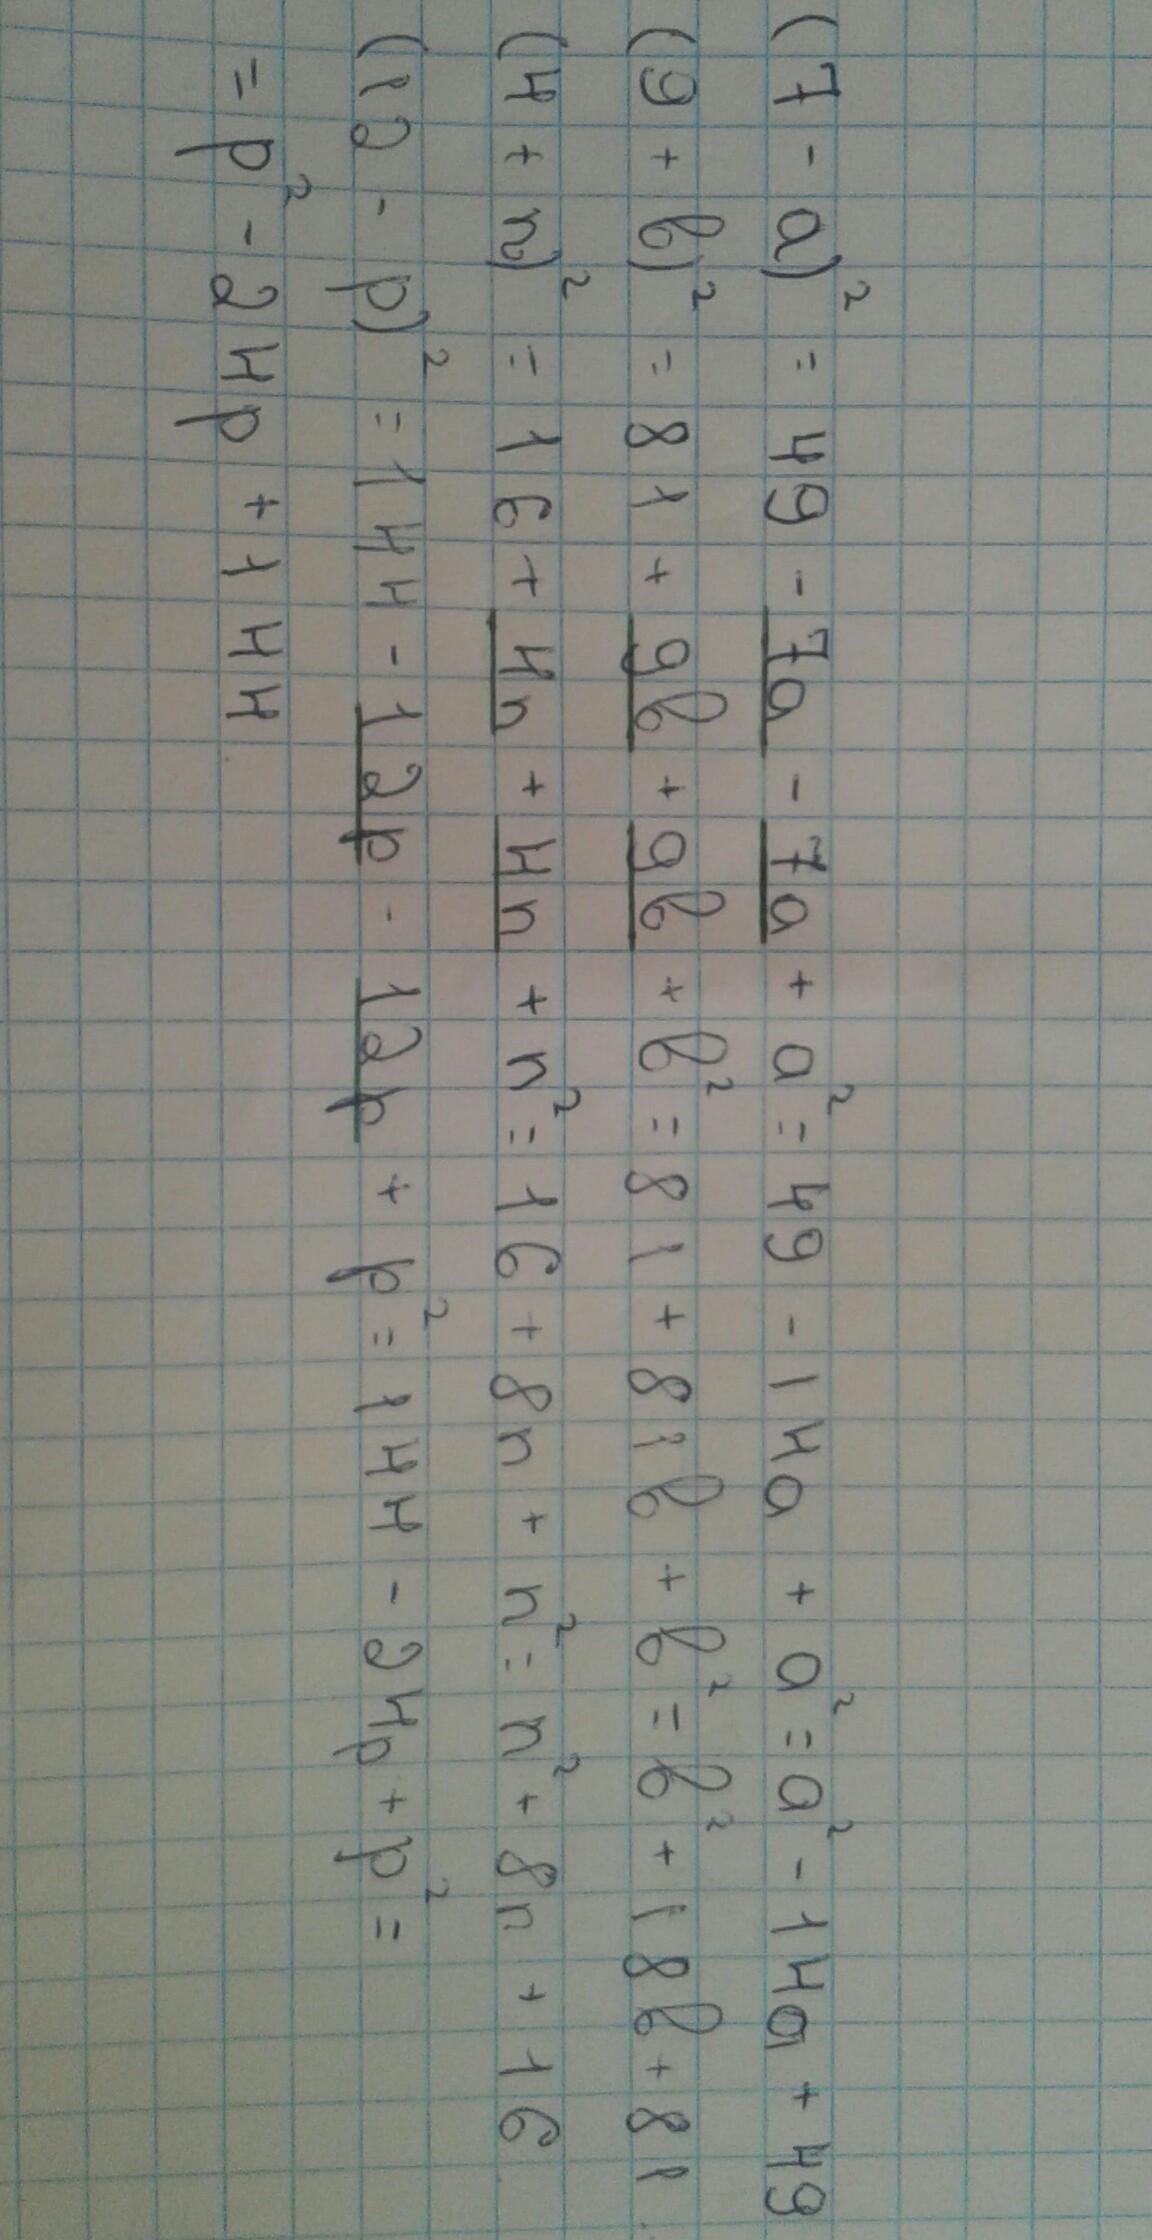 (7 - a)² = 49 - 7a - 7a + a² = 49 - 14a + a² = a² - 14a + 49
(9 + b)² = 81 + 9b + 9b + b² = 81 + 81b + b² = b² + 18b + 81
(4 + n)² = 16 + 4n + 4n + n² = 16 + 8n + n² = n² + 8n + 16
(12 - p)² = 144 - 12p - 12p + p² = 144 - 24p + p² =
= p² - 24p + 144